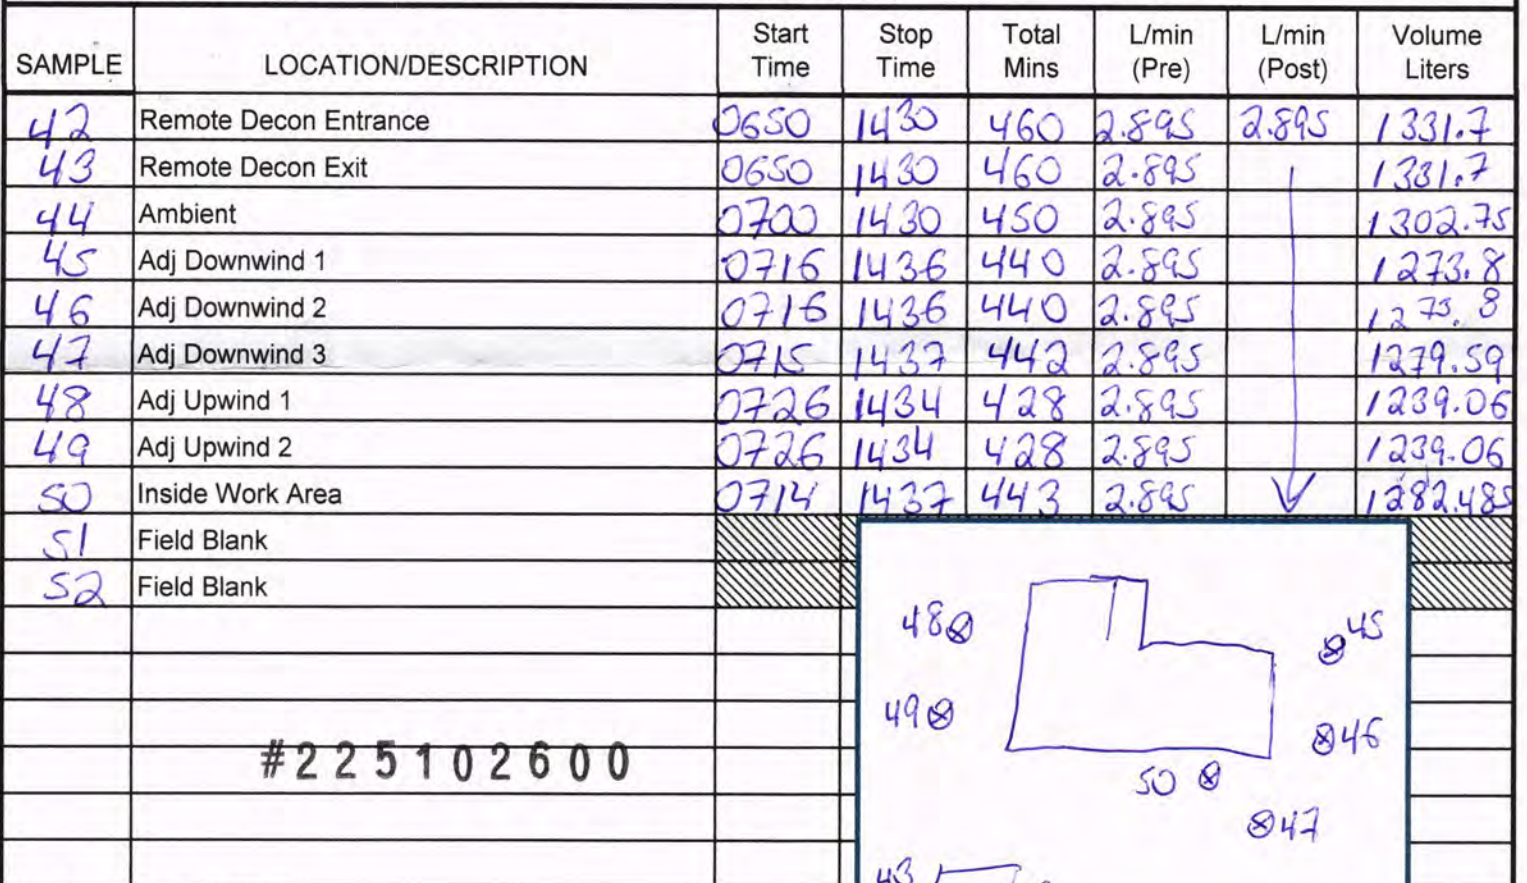 SAMPLE LOCATION/DESCRIPTION Start Time Stop Time Total Mins L/min (Pre) L/min (Post) Volume Liters
42 Remote Decon Entrance 0650 1430 460 2.895 2.895 1331.7
43 Remote Decon Exit 0650 1430 460 2.895 1331.7
44 Ambient 0700 1430 450 2.895 1302.75
45 Adj Downwind 1 0716 1436 440 2.895 1273.8
46 Adj Downwind 2 0716 1436 440 2.895 1273.8
47 Adj Downwind 3 0715 1437 442 2.895 1279.59
48 Adj Upwind 1 0726 1434 428 2.895 1239.06
49 Adj Upwind 2 0726 1434 428 2.895 1239.06
50 Inside Work Area 0714 1437 443 2.895 1282.485
51 Field Blank
52 Field Blank
48 45
49 46
50
47
43
#225102600